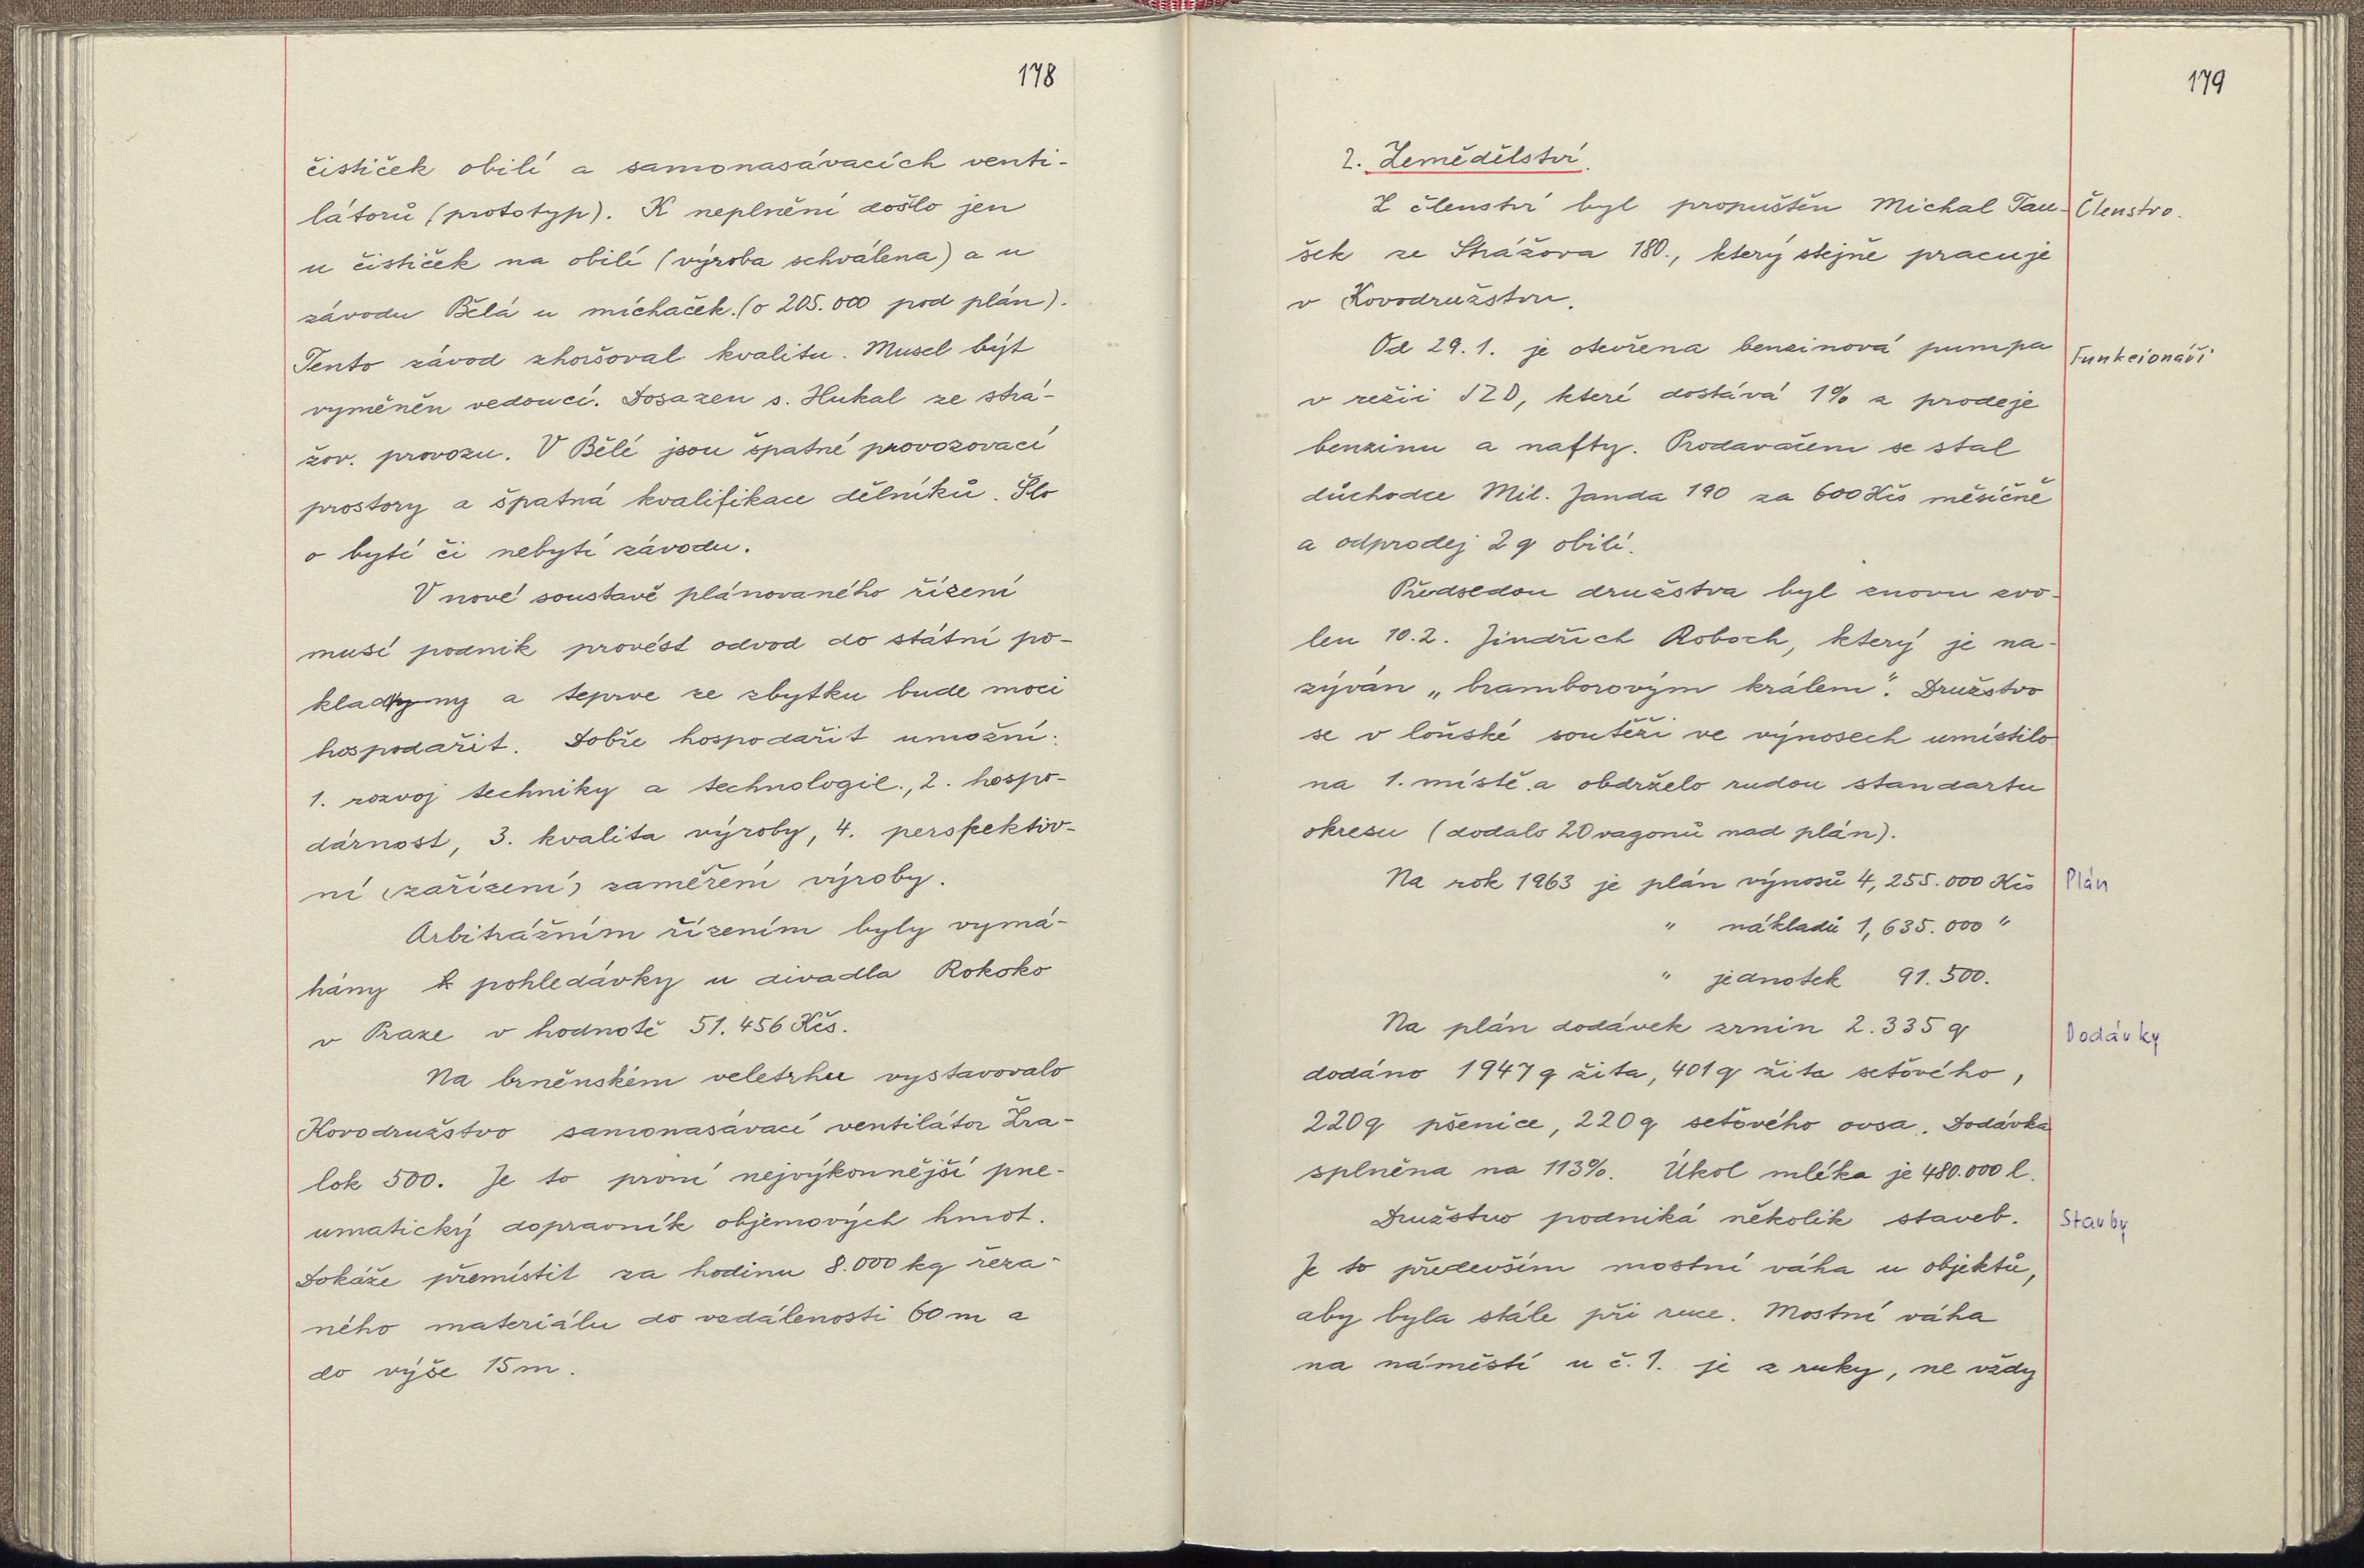 178
čističek obilí a samonasávacích venti-
látorů (prototyp). K neplnění došlo jen
u čističek na obilí (výroba schválena) a u
závodu Bělá u míchaček. (o 205.000 pod plán).
Tento závod zhoršoval kvalitu. Musel být
vyměněn vedoucí. Dosazen s. Hukal ze strá-
žov. provozu. V Bělé jsou špatné provozovací
prostory a špatná kvalifikace dělníků. Šlo
o bytí či nebytí závodu.
V nové soustavě plánovaného řízení
musí podnik provést odvod do státní po-
kladny a teprve ze zbytku bude moci
hospodařit. Dobře hospodařit umožní:
1. rozvoj techniky a technologie., 2. hospo-
dárnost, 3. kvalita výroby, 4. perspektiv-
ní (zařízení) zaměření výroby.
Arbitrážním řízením byly vymá-
hány pohledávky u divadla Rokoko
v Praze v hodnotě 51.456 Kčs.
Na brněnském veletrhu vystavovalo
Kovodružstvo samonasávací ventilátor Žra-
lok 500. Je to první nejvýkonnější pne-
umatický dopravník objemových hmot.
Dokáže přemístit za hodinu 8.000 kg řeza-
ného materiálu do vzdálenosti 60 m a
do výše 15 m.
179
2. Zemědělství.
Z členství byl propuštěn Michal Tau- Členstvo.
šek ze Strážova 180., který stejně pracuje
v Kovodružstvu.
Od 29.1. je otevřena benzinová pumpa Funkcionáři
v režii JZD, které dostává 1% z prodeje
benzinu a nafty. Prodavačem se stal
důchodce Mil. Janda 190 za 600 Kčs měsíčně
a odprodej 2 q obilí.
Předsedou družstva byl znovu zvo-
len 10.2. Jindřich Roboch, který je na-
zýván „bramborovým králem“. Družstvo
se v loňské soutěži ve výnosech umístilo
na 1. místě a obdrželo rudou standartu
okresu (dodalo 20 vagonů nad plán).
Na rok 1963 je plán výnosů 4,255.000 Kčs Plán
" nákladů 1,635.000 "
" jednotek 91.500.
Na plán dodávek zrnin 2.335 q Dodávky
dodáno 1947 q žita, 401 q žita seťového,
220 q pšenice, 220 q seťového ovsa. Dodávka
splněna na 113%. Úkol mléka je 480.000 l.
Družstvo podniká několik staveb. Stavby
Je to především mostní váha u objektů,
aby byla stále při ruce. Mostní váha
na náměstí u č.1. je z ruky, ne vždy